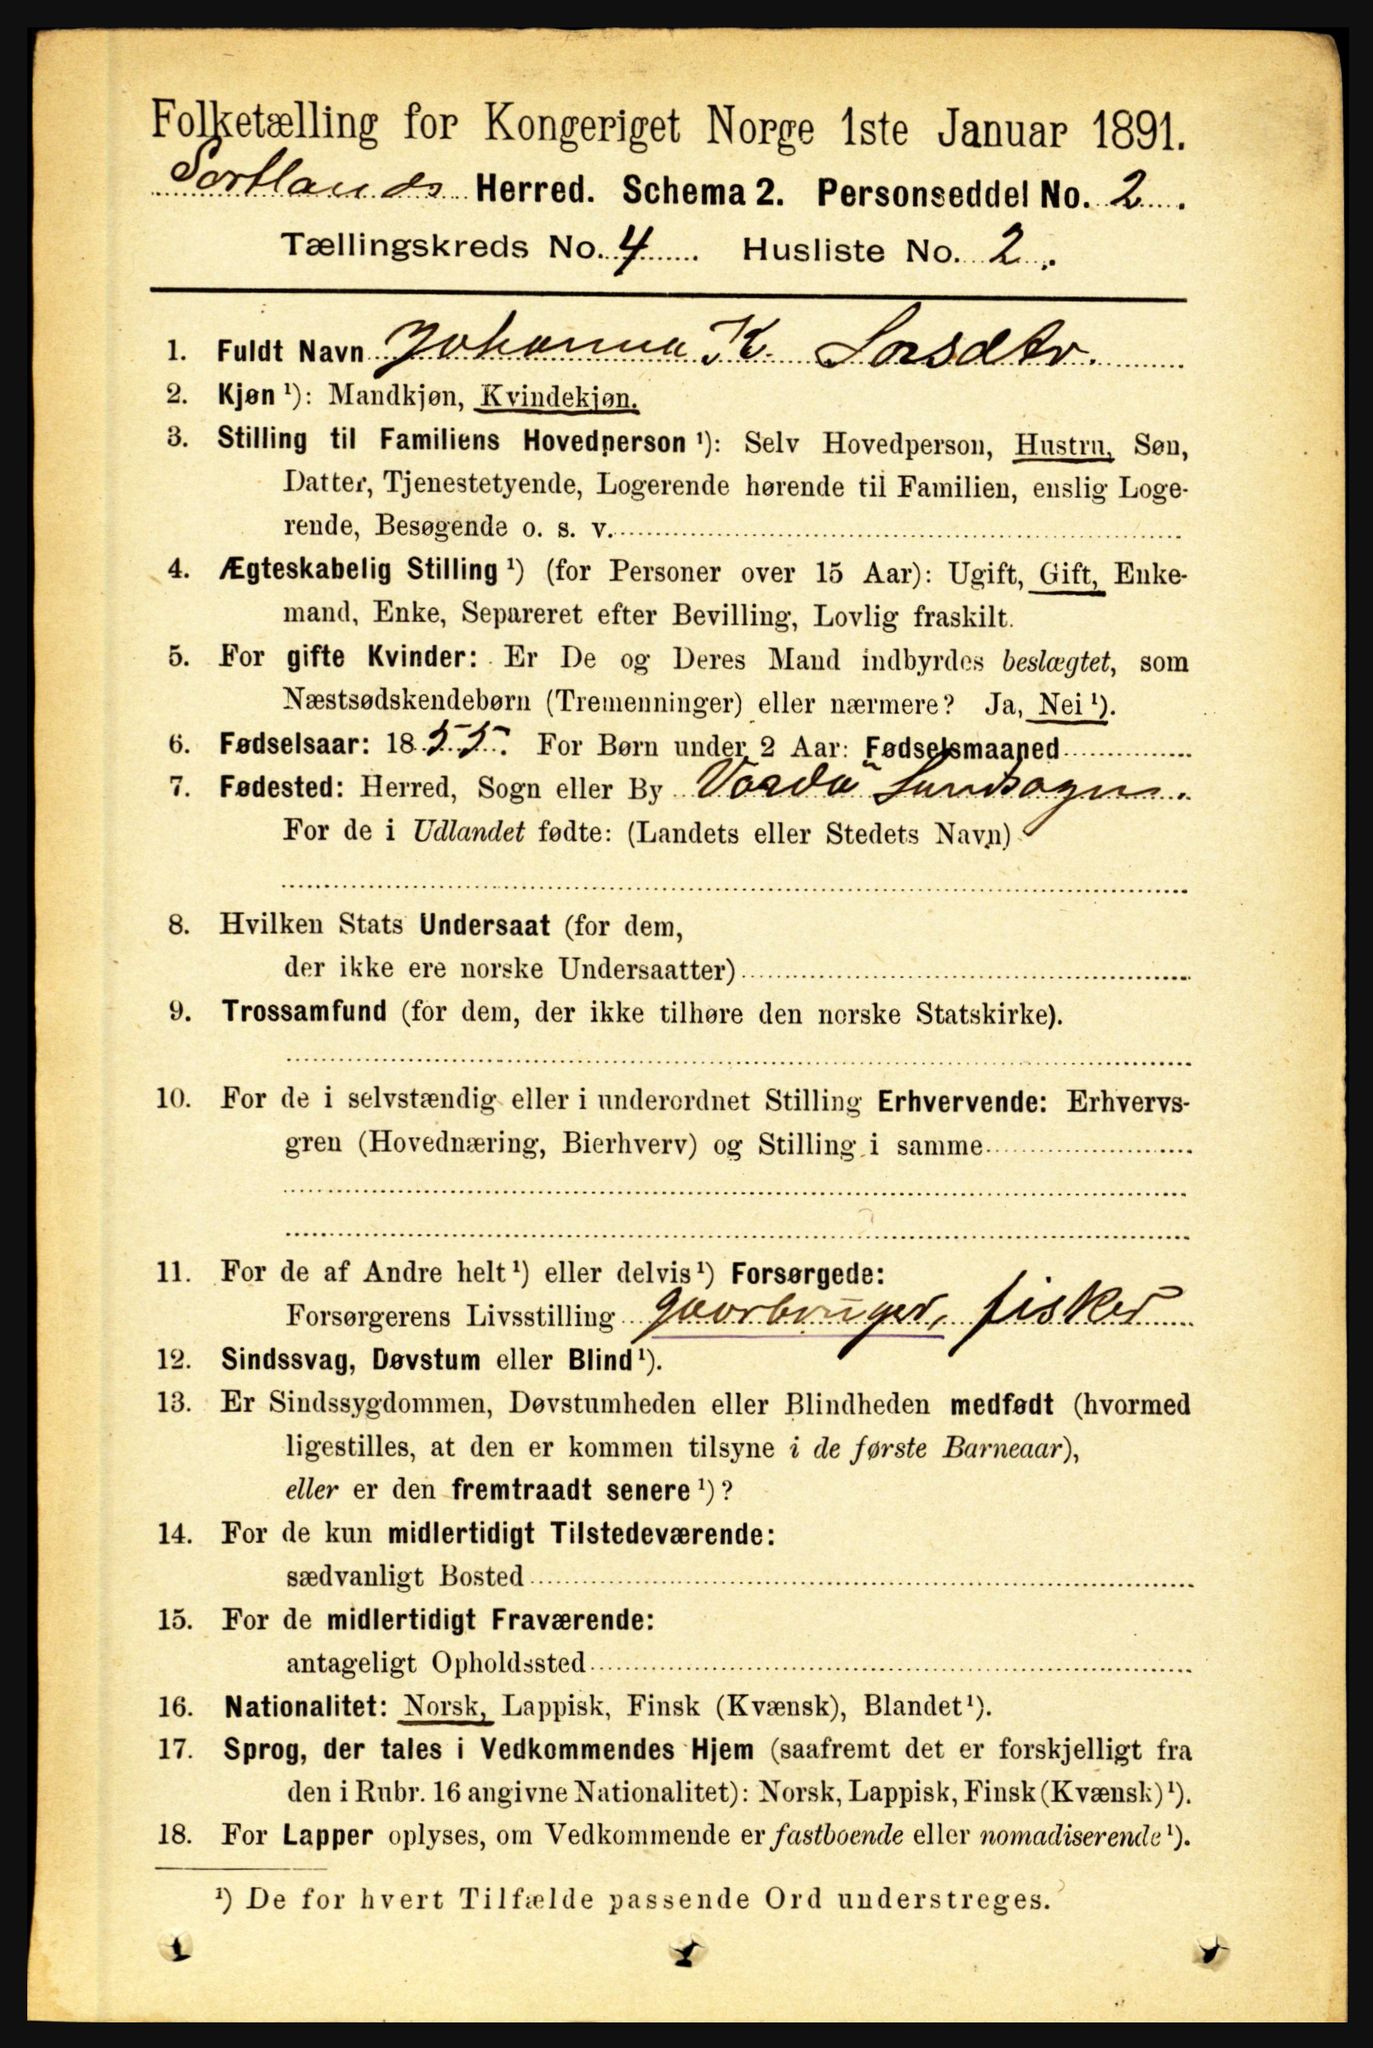 Folketælling for Kongeriget Norge 1ste Januar 1891.
Sortlands Herred. Schema 2. Personseddel No. 2.
Tællingskreds No. 4 Husliste No. 2.
1. Fuldt Navn Johanna K. Larsdtr.
2. Kjøn ¹): Mandkjøn, Kvindekjøn.
3. Stilling til Familiens Hovedperson ¹): Selv Hovedperson, Hustru, Søn,
Datter, Tjenestetyende, Logerende hørende til Familien, enslig Loge-
rende, Besøgende o. s. v.
4. Ægteskabelig Stilling ¹) (for Personer over 15 Aar): Ugift, Gift, Enke-
mand, Enke, Separeret efter Bevilling, Lovlig fraskilt.
5. For gifte Kvinder: Er De og Deres Mand indbyrdes beslægtet, som
Næstsødskendebørn (Tremenninger) eller nærmere? Ja, Nei ¹).
6. Fødselsaar: 1855. For Børn under 2 Aar: Fødselsmaaned
7. Fødested: Herred, Sogn eller By
For de i Udlandet fødte: (Landets eller Stedets Navn)
8. Hvilken Stats Undersaat (for dem,
der ikke ere norske Undersaatter)
9. Trossamfund (for dem, der ikke tilhøre den norske Statskirke).
10. For de i selvstændig eller i underordnet Stilling Erhvervende: Erhvervs-
gren (Hovednæring, Bierhverv) og Stilling i samme
11. For de af Andre helt ¹) eller delvis ¹) Forsørgede:
Forsørgerens Livsstilling gaardbruger, fisker
12. Sindssvag, Døvstum eller Blind ¹).
13. Er Sindssygdommen, Døvstumheden eller Blindheden medfødt (hvormed
ligestilles, at den er kommen tilsyne i de første Barneaar),
eller er den fremtraadt senere ¹)?
14. For de kun midlertidigt Tilstedeværende:
sædvanligt Bosted
15. For de midlertidigt Fraværende:
antageligt Opholdssted
16. Nationalitet: Norsk, Lappisk, Finsk (Kvænsk), Blandet ¹).
17. Sprog, der tales i Vedkommendes Hjem (saafremt det er forskjelligt fra
den i Rubr. 16 angivne Nationalitet): Norsk, Lappisk, Finsk (Kvænsk) ¹).
18. For Lapper oplyses, om Vedkommende er fastboende eller nomadiserende ¹).
¹) De for hvert Tilfælde passende Ord understreges.